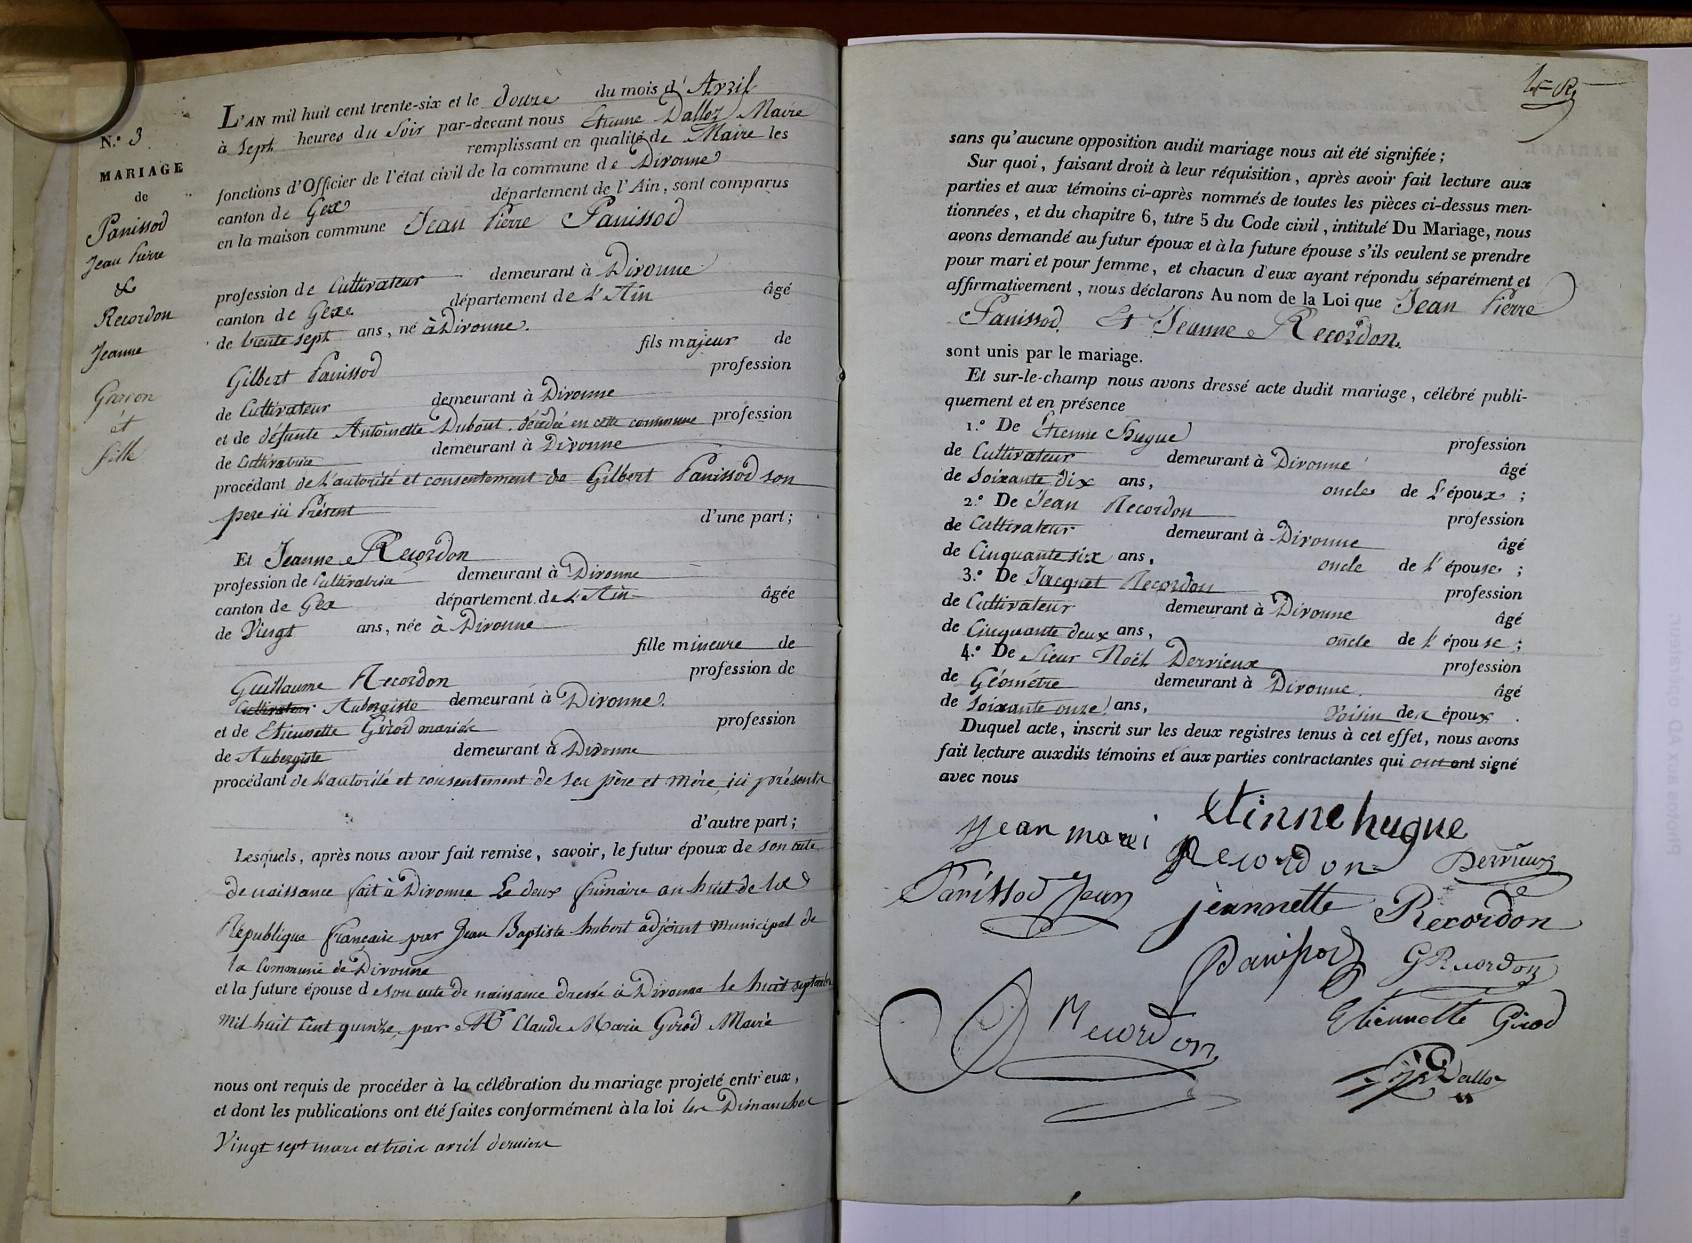 N.º 3
MARIAGE
de
Panissod
Jean Pierre
&
Recordon
Jeanne
Garçon
et
fille
L'AN mil huit cent trente-six et le douze du mois d'Avril
à Sept heures du Soir par-devant nous Etienne Dalloz Maire
remplissant en qualité de Maire les
fonctions d'Officier de l'état civil de la commune de Divonne
canton de Gex département de l'Ain, sont comparus
en la maison commune Jean Pierre Panissod
profession de Cultivateur demeurant à Divonne
canton de Gex département de L'Ain âgé
de trente sept ans, né à Divonne.
fils majeur de
Gilbert Panissod profession
de Cultivateur demeurant à Divonne
et de défunte Antoinette Dubout décédée en cette commune profession
de Cultivatrice demeurant à Divonne
procédant de L'autorité et consentement de Gilbert Panissod son
pere ici Présent d'une part;
Et Jeanne Recordon
profession de Cultivatrice demeurant à Divonne
canton de Gex département de L'Ain âgée
de Vingt ans, née à Divonne
fille mineure de
Guillaume Recordon profession de
Cultivateur Aubergiste demeurant à Divonne
et de Etiennette Girod mariée profession
de Aubergiste demeurant à Divonne
procédant de L'autorité et consentement de ses père et mère, ici présents
d'autre part;
Lesquels, après nous avoir fait remise, savoir, le futur époux de son acte
de naissance fait à Divonne Le deux frimaire an huit de la
République française par Jean Baptiste hubert adjoint municipal de
la Commune de Divonne
et la future épouse de son acte de naissance dressé à Divonne le huit septembre
mil huit cent quinze, par Mr Claude Marie Girod Maire
nous ont requis de procéder à la célébration du mariage projeté entr'eux,
et dont les publications ont été faites conformément à la loi les Dimanches
Vingt sept mars et trois avril derniers
sans qu'aucune opposition audit mariage nous ait été signifiée;
Sur quoi, faisant droit à leur réquisition, après avoir fait lecture aux
parties et aux témoins ci-après nommés de toutes les pièces ci-dessus men-
tionnées, et du chapitre 6, titre 5 du Code civil, intitulé Du Mariage, nous
avons demandé au futur époux et à la future épouse s'ils veulent se prendre
pour mari et pour femme, et chacun d'eux ayant répondu séparément et
affirmativement, nous déclarons Au nom de la Loi que Jean Pierre
Panissod. Et Jeanne Recordon.
sont unis par le mariage.
Et sur-le-champ nous avons dressé acte dudit mariage, célébré publi-
quement et en présence
1.º De Etienne Hugue profession
de Cultivateur demeurant à Divonne âgé
de Soixante dix ans, oncle de L'époux;
2.º De Jean Recordon profession
de Cultivateur demeurant à Divonne âgé
de Cinquante six ans, oncle de l'épouse;
3.º De Jacquet Recordon profession
de Cultivateur demeurant à Divonne âgé
de Cinquante deux ans, oncle de l'épouse;
4.º De Sieur Noël Derrieux profession
de Géomètre demeurant à Divonne. âgé
de Soixante onze ans, Voisin des époux.
Duquel acte, inscrit sur les deux registres tenus à cet effet, nous avons
fait lecture auxdits témoins et aux parties contractantes qui ont ont signé
avec nous
Jean marei Etinne hugue
Recordon Derrieux
Panissod Jean jeannette Recordon
Panissod G Recordon
Recordon Etiennette Girod
Dalloz